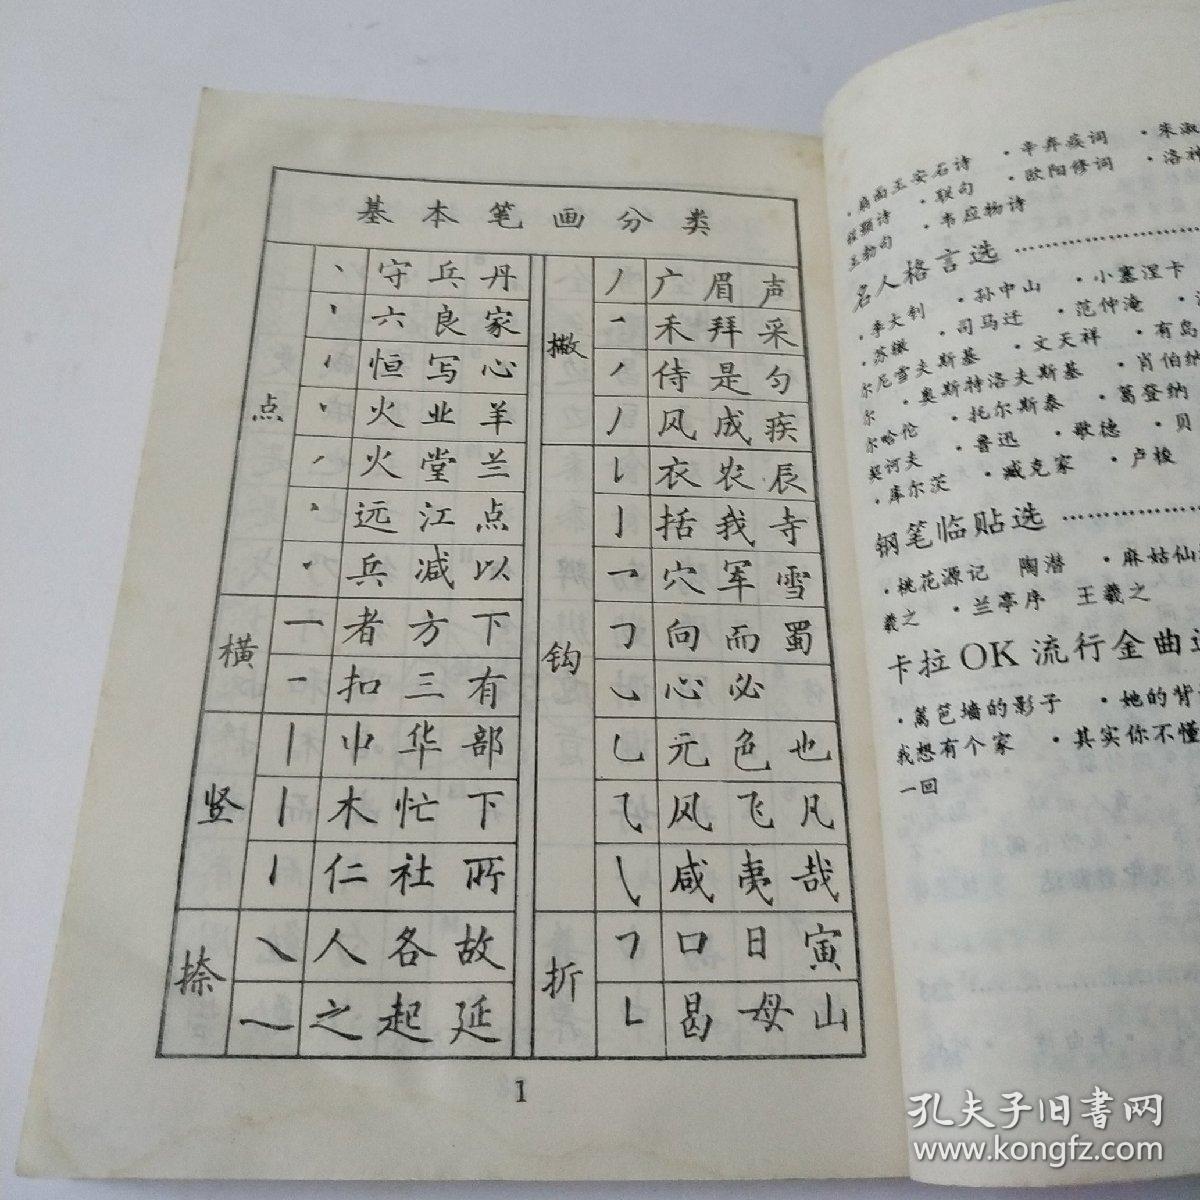 基本笔画分类
点
丶 守兵丹
丶 六良家
恒写心
火业羊
火堂兰
远江点
兵减以
横
一 者方下
一 扣三有
竖
丨 中华部
丨 木忙下
丨 仁社所
捺
㇏ 人各故
之起延
撇
丿 广眉声
禾拜采
侍是匀
丿 风成疾
钩
衣农辰
亅 括我寺
乛 穴军雪
㇆ 向而蜀
㇃ 心必
乚 元色也
⺄ 风飞凡
㇂ 咸夷哉
折
𠃍 口日寅
𠃊 曷母山
1
·扇面王安石诗 ·辛弃疾词 ·朱淑
程颢诗 ·联句 ·欧阳修词 ·洛神
王勃句 ·韦应物诗
名人格言选
·李大钊 ·孙中山 ·小塞涅卡
·苏辙 ·司马迁 ·范仲淹
尔尼雪夫斯基 ·文天祥 ·有岛
尔 ·奥斯特洛夫斯基 ·肖伯纳
尔哈伦 ·托尔斯泰 ·葛登纳
契诃夫 ·鲁迅 ·歌德 ·贝
·库尔茨 ·臧克家 ·卢梭
钢笔临贴选
·桃花源记 陶潜 ·麻姑仙
羲之 ·兰亭序 王羲之
卡拉OK流行金曲
·篱笆墙的影子 ·她的背
我想有个家 ·其实你不懂
一回
孔夫子旧书网
www.kongfz.com